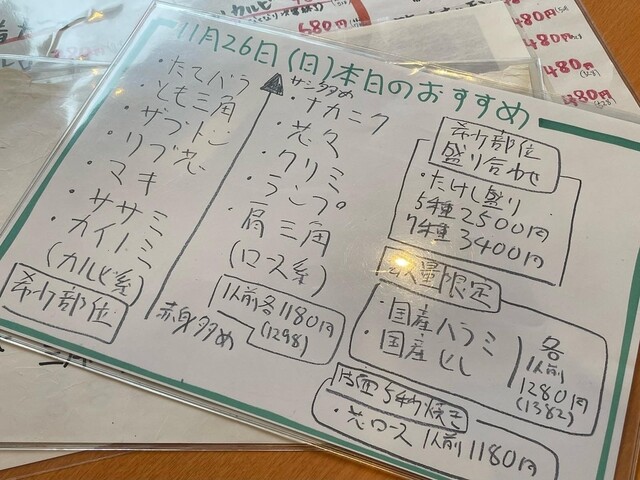 11月26日(日)本日のおすすめ
・たてバラ
・とも三角
・ザブトン
・リブ芯
・マキ
・ササミ
・カイノミ
(カルビ系)
希少部位
サシ多め
赤身多め
・ナカニク
・芯々
・クリミ
・ランプ
・肩三角
(ロース系)
1人前各1180円
(1298)
希少部位
盛り合わせ
・たけし盛り
5種2500円
7種3400円
数量限定
・国産ハラミ
・国産ヒレ
各
1人前
1280円
(1382)
5秒焼き
・芯ロース 1人前1180円
カルビ
680円
480円
480円
480円
480円